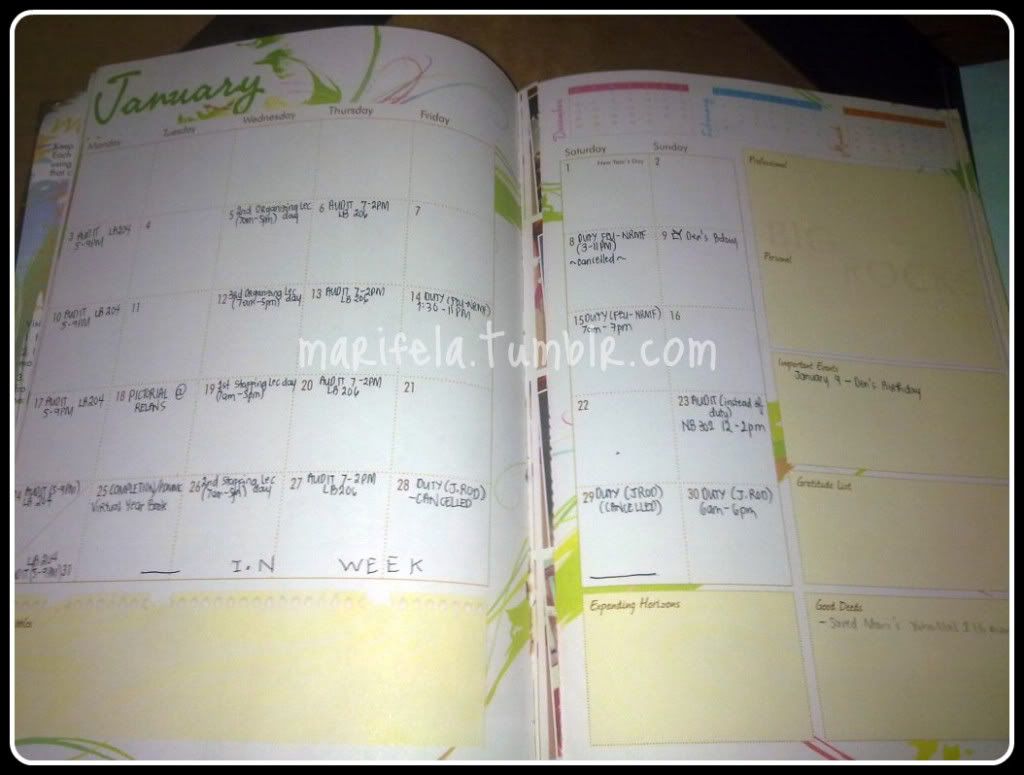 January
Monday
Tuesday
Wednesday
Thursday
Friday
3 AUDIT LB204
5-9PM
4
5 2nd Organizing Lec
(7am-5pm) day
6 AUDIT 7-2PM
LB 206
7
10 AUDIT LB 204
5-9PM
11
12 3rd Organizing Lec
(7am-5pm) day
13 AUDIT 7-2PM
LB206
14 DUTY (FEU-NRMF)
1:30-11PM
17 AUDIT LB204
5-9PM
18 PICTORIAL @
RELANS
19 1st Stopping Lec day
(7am-5pm)
20 AUDIT 7-2PM
LB 206
21
AUDIT (5-9PM)
LB 204
25 COMPLETION/
Virtual Year Book
26 2nd Stopping Lec
(7am-5pm) day
27 AUDIT 7-2PM
LB206
28 DUTY (J.ROD)
~CANCELLED
LB 204
(5-9PM) 31
I.N WEEK
December
February
Saturday
Sunday
1 New Year's Day
2
8 DUTY FEU-NRMF
(3-11PM)
~cancelled~
9 Den's Bday
15 DUTY (FEU-NRMF)
7am-7pm
16
22
23 AUDIT (instead of
duty)
NB 302 12-2pm
29 DUTY (JROD)
(CANCELLED)
30 DUTY (J.ROD)
6am-6pm
Professional
Personal
Important Events
January 9 - Den's Birthday
Gratitude List
Expanding Horizons
Good Deeds
- Saved Mom's
marifela.tumblr.com